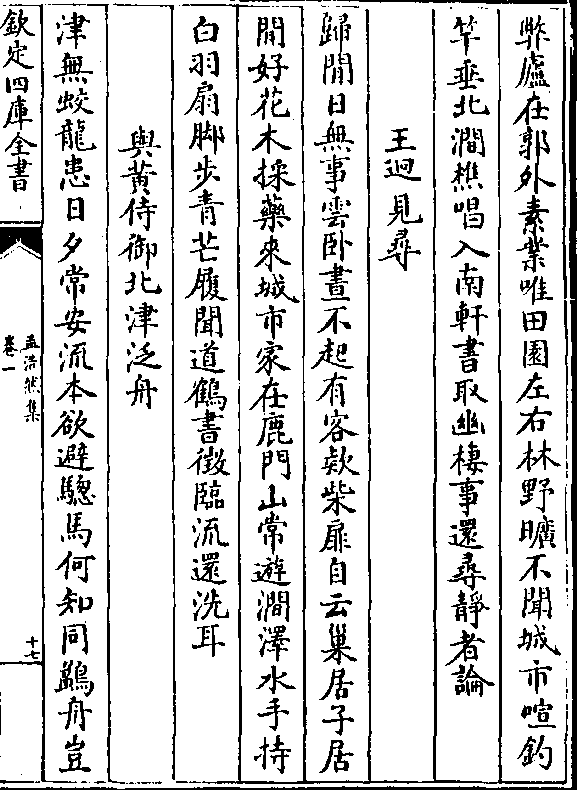 弊廬在郭外素業唯田園左右林野曠不聞城市喧釣
竿垂北澗樵唱入南軒書取幽棲事還尋靜者論
王迥見尋
歸閒日無事雲卧晝不起有客欵柴扉自云巢居子居
閒好花木採藥來城市家在鹿門山常遊澗澤水手持
白羽扇脚步青芒履聞道鶴書徴臨流還洗耳
與黄侍御北津泛舟
津無蛟龍患日夕常安流本欲避驄馬何知同鷁舟豈
欽定四庫全書
孟浩然集
卷一
十七